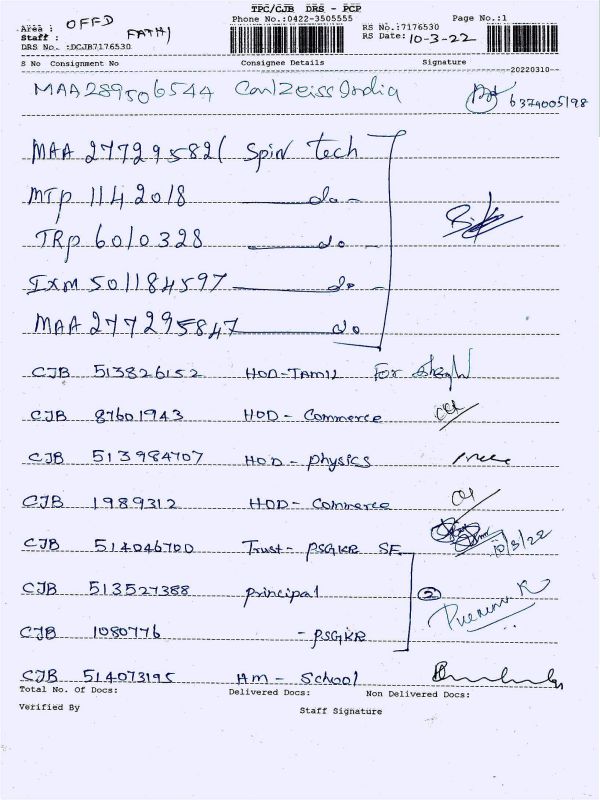 TPC/CJB DRS - PCP
Phone No.:0422-3505555
Page No.:1
Area : OFFD
Staff : FATHI
DRS No. :DCJB7176530
RS No.:7176530
RS Date: 10-3-22
S No Consignment No Consignee Details Signature
20220310
MAA289506544 Carlzeiss India 6374005198
MAA 277295821 Spin tech
MTP 1142018 do
TRP 6010328 do
IXM 501184597 do
MAA 277295847 do
CJB 513826152 HOD-TAMIL For
CJB 87601943 HOD - Commerce
CJB 513984707 HOD - Physics
CJB 1989312 HOD - Commerce
CJB 514046700 Trust - PSGKR SE 10/3/22
CJB 513527388 Principal 2
CJB 1080776 - PSGKR
CJB 514073195 HM - School
Total No. Of Docs: Delivered Docs: Non Delivered Docs:
Verified By Staff Signature